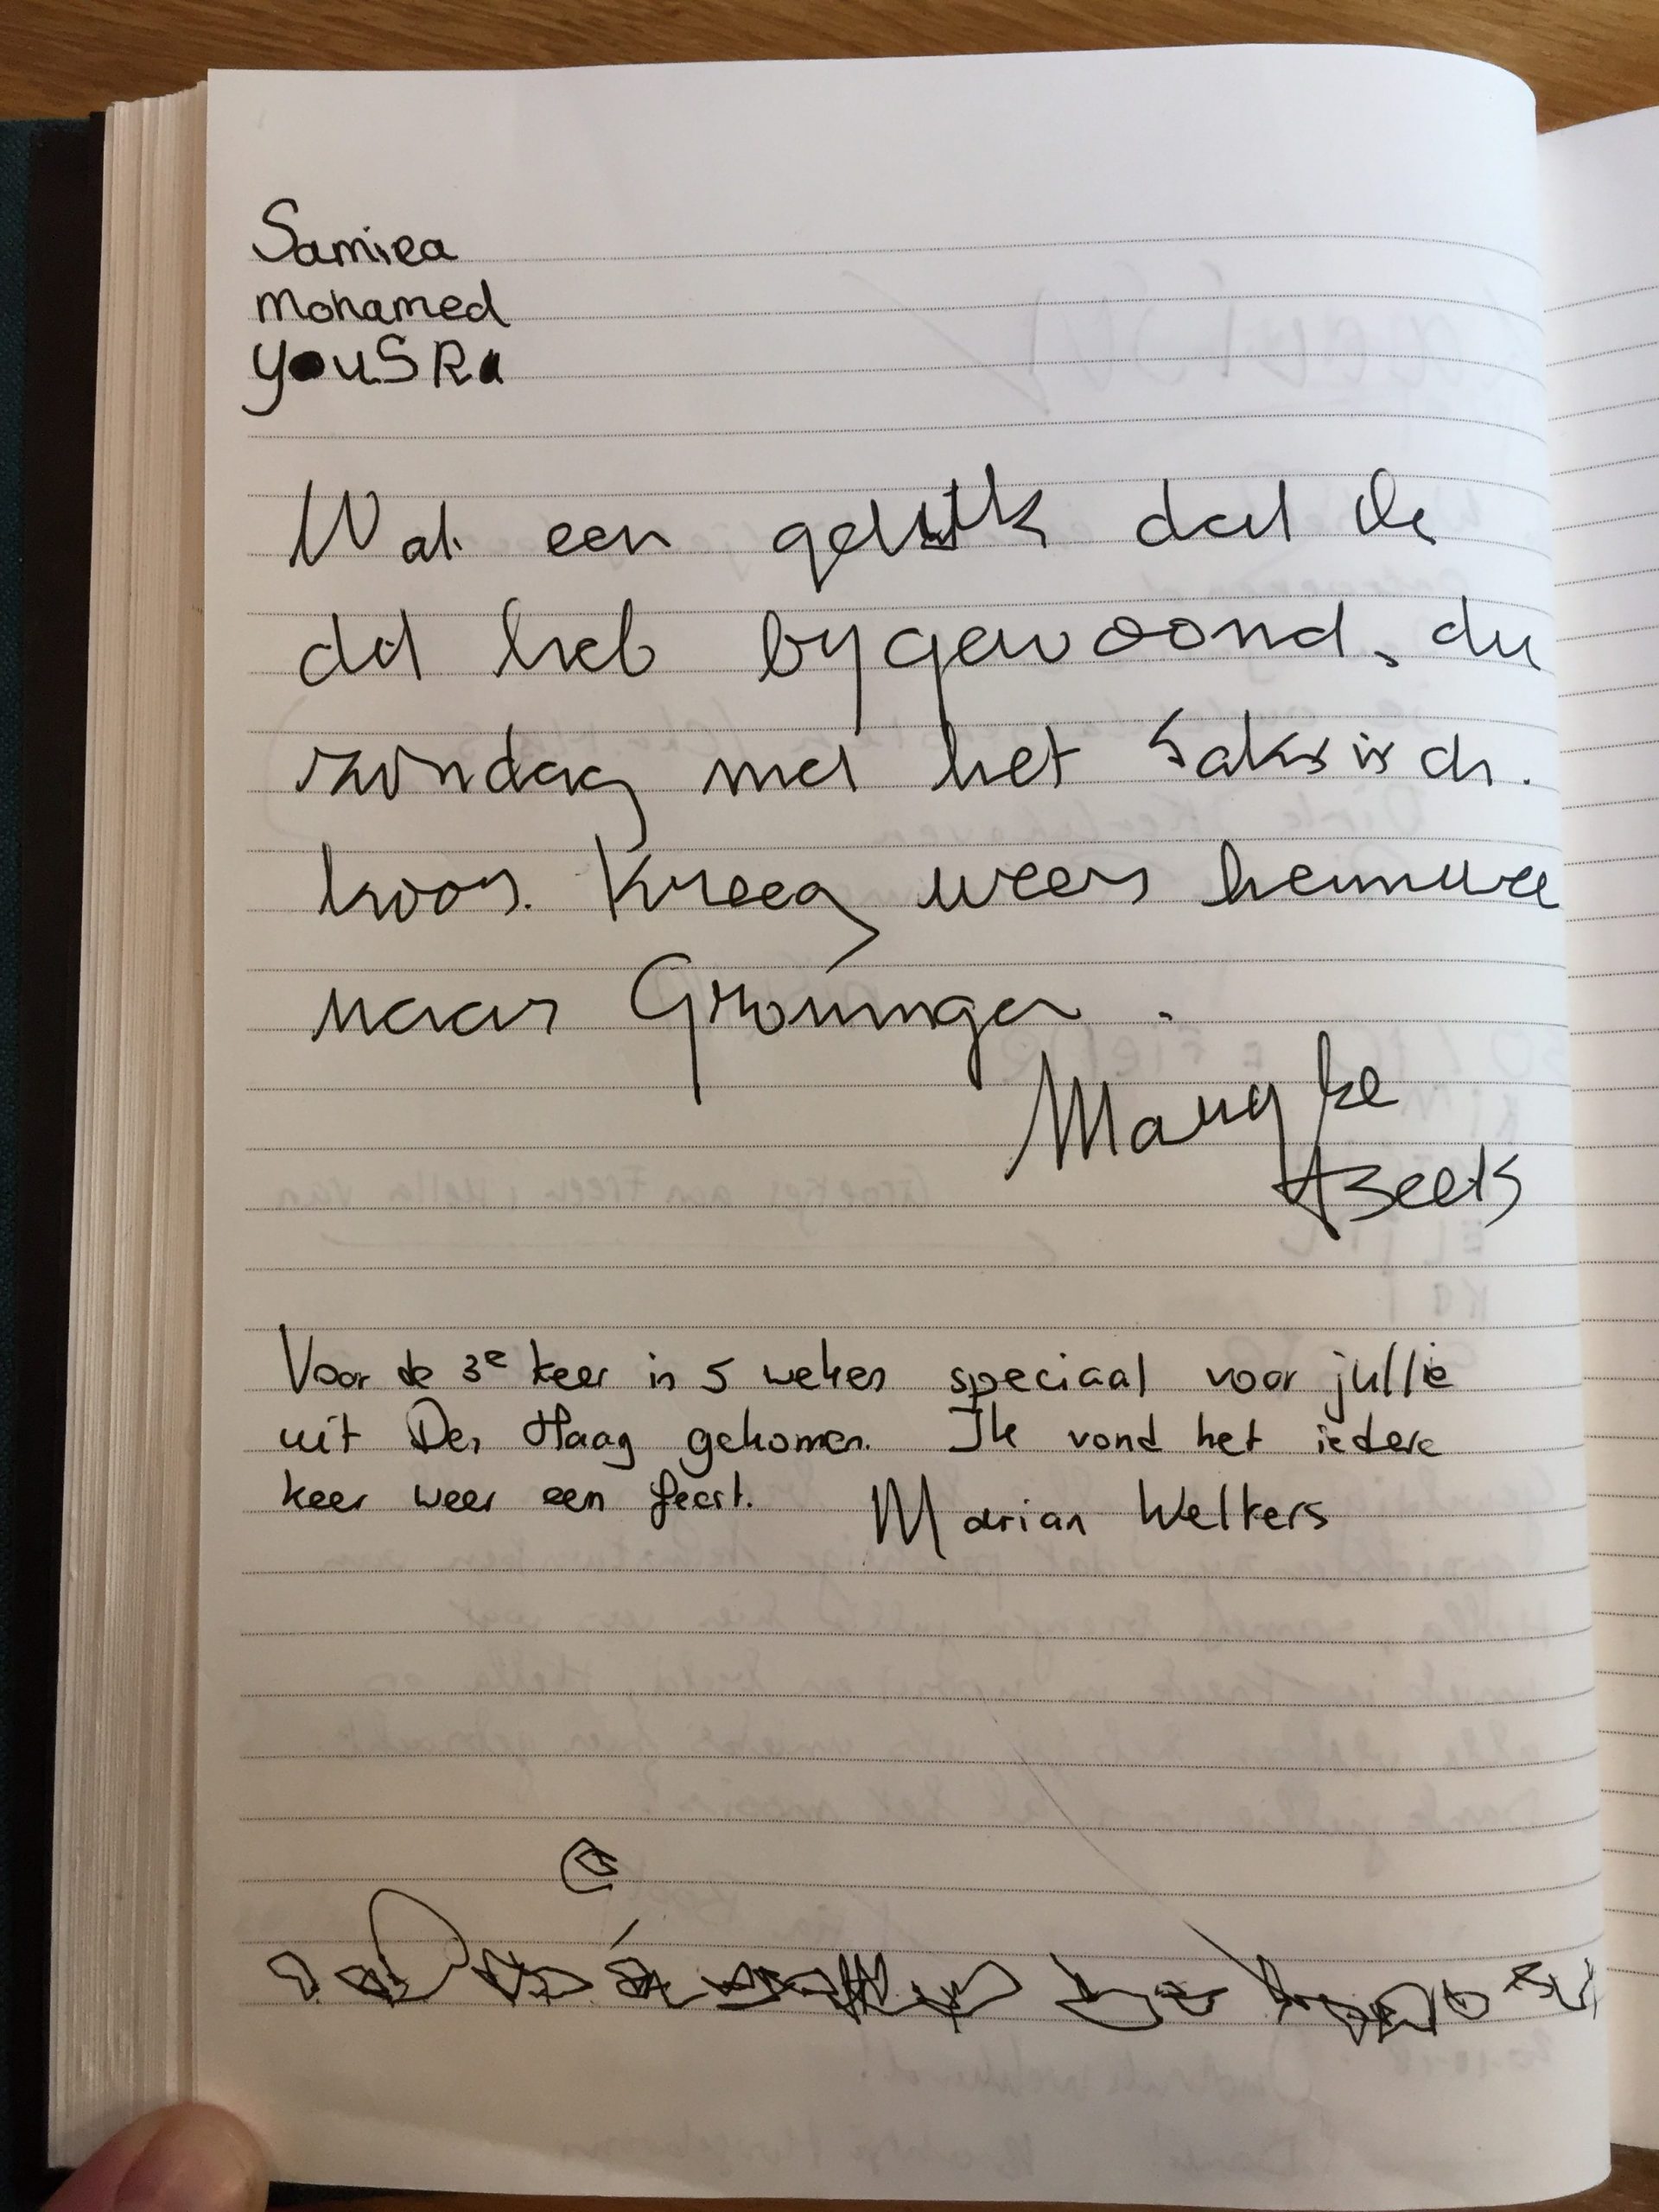 Samira
Mohamed
YOUSRa
Wat een geluk dat ik
dit heb bygewoond, die
zondag met het Saksisch.
koor. Kreeg weer heimwee
naar Groningen.
Maryke
Beets
Voor de 3e keer in 5 weken speciaal voor jullie
uit Den Haag gekomen. Ik vond het iedere
keer weer een feest. Marian Welkers